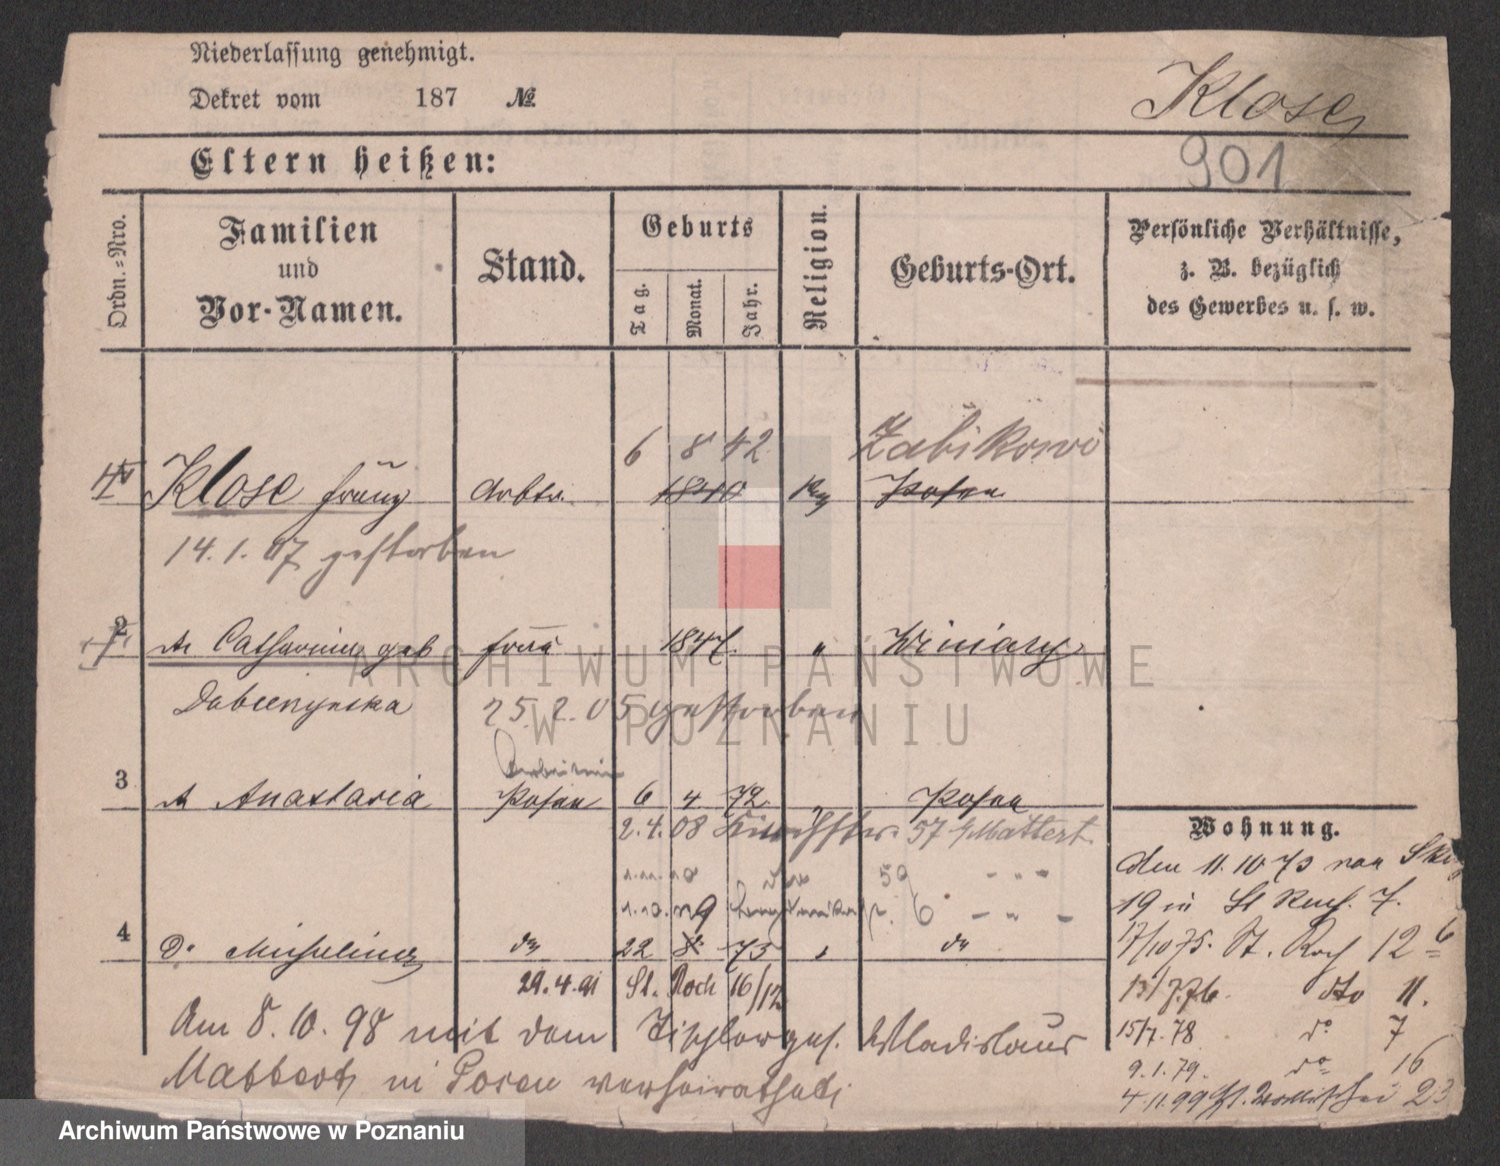 Niederlassung genehmigt.
Dekret vom 187 №
Klose
901
Eltern heißen:
Ordn.-Nro.
Familien und Vor-Namen.
Stand.
Geburts
Tag. Monat. Jahr.
Religion.
Geburts-Ort.
Persönliche Verhältnisse,
z. B. bezüglich
des Gewerbes u. s. w.
6 8 42 Zabikowo
1 Klose Franz Arbtr. 1840 Posen
14.1.07 gestorben
2 Catharina geb Frau 1847. " Winiary
25.2.05 gestorben
3 Anastasia Posen 6 4 72 " Posen
2.4.08 57 b/Mattert
1.11.10 59 - - -
6 - " -
4 Do Michalina do 22 8 73 " do
29.4.91 St. Roch 16/12
Am 8.10.98 mit dem Tischlerges. Wladislaus
Mattert in Posen verheirathet.
Wohnung.
den 11.10 73 von
19 in St Roch. 7.
17/10 75. St. Roch 12 6
dto 11.
15/7. 78 do 7
9.1.79. do 16
4.11.99 23
ARCHIWUM PAŃSTWOWE
W POZNANIU
Archiwum Państwowe w Poznaniu